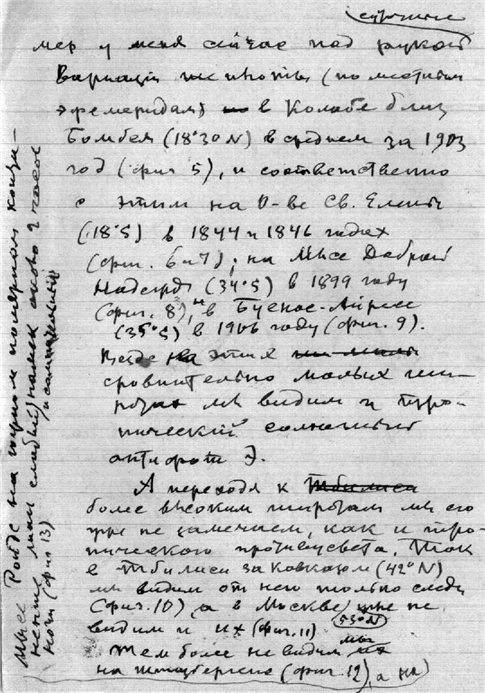 мер у меня сейчас под рукой
Вариации (по местным
эфемеридам) в Колабе близ
Бомбея (18°30'N) в среднем за 1903
год (фиг 5), и соответственно
с этим на О-ве Св. Елены
(18°S) в 1844 и 1846 годах
(фиг. 6 и 7); на мысе Доброй
Надежды (34°S) в 1899 году
(фиг. 8), и в Буенос-Айрес
(35°S) в 1906 году (фиг. 9).
Везде на этих
сравнительно малых ши-
ротах мы видим и тро-
пический солнечный
Э.
А переходя к Тбилиси
более высоким широтам мы его
уже не замечаем, как и тро-
пического противусвета. Так
в Тбилиси за Кавказом (42°N)
мы видим от него только следы
(фиг. 10), а в Москве уже не
видим и их (фиг. 11) (53°N)
Тем более не видим мы их
на Шпицбергене (фиг. 12), а на
мысе на полярном
слабый намек около 2 часов
ночи (фиг 13)